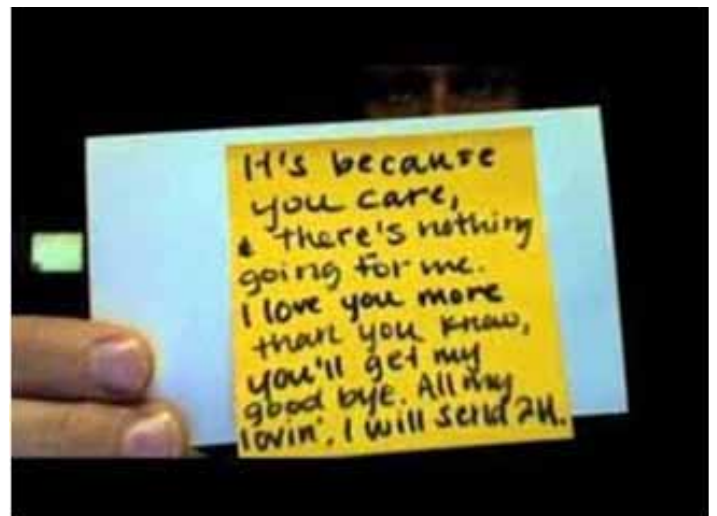 It's because
you care,
& there's nothing
going for me.
I love you more
than you know,
you'll get my
good bye. All my
lovin', I will send 2U.